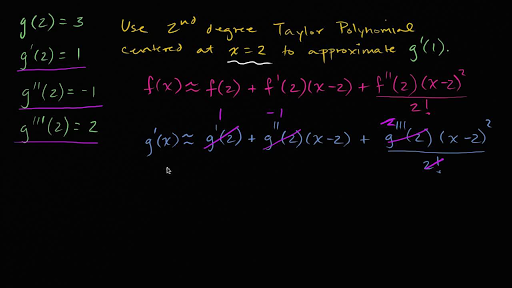 g(2) = 3
g'(2) = 1
g''(2) = -1
g'''(2) = 2
Use 2nd degree Taylor Polynomial
centered at x=2 to approximate g'(1).
f(x) ≈ f(2) + f'(2)(x-2) + f''(2)(x-2)²/2!
1 -1 2
g'(x) ≈ g'(2) + g''(2)(x-2) + g'''(2)(x-2)²/2!